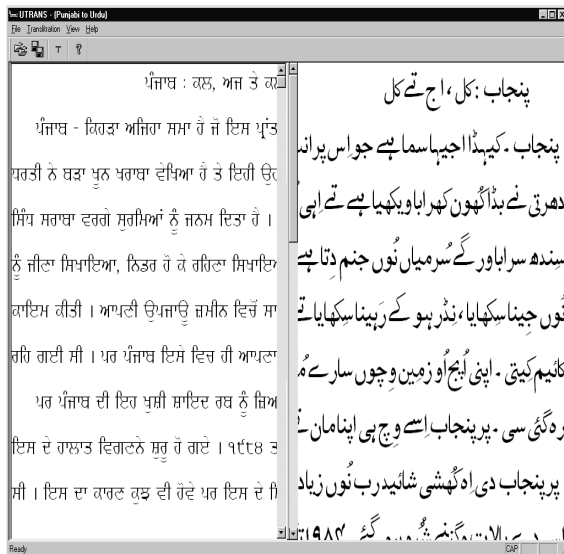 UTRANS - (Punjabi to Urdu)
File Translitration View Help
T ?
ਪੰਜਾਬ : ਕਲ, ਅਜ ਤੇ ਕਲ
ਪੰਜਾਬ - ਕਿਹੜਾ ਅਜਿਹਾ ਸਮਾ ਹੈ ਜੋ ਇਸ ਪ੍ਰਾਂਤ
ਧਰਤੀ ਨੇ ਬੜਾ ਖੂਨ ਖਰਾਬਾ ਵੇਖਿਆ ਹੈ ਤੇ ਇਹੀ ਉਹ
ਸਿੰਧ ਸਰਾਬਾ ਵਰਗੇ ਸੁਰਮਿਆਂ ਨੂੰ ਜਨਮ ਦਿਤਾ ਹੈ ।
ਨੂੰ ਜੀਣਾ ਸਿਖਾਇਆ, ਨਿਡਰ ਹੋ ਕੇ ਰਹਿਣਾ ਸਿਖਾਇਆ
ਕਾਇਮ ਕੀਤੀ । ਆਪਣੀ ਉਪਜਾਊ ਜ਼ਮੀਨ ਵਿਚੋਂ ਸਾ
ਰਹਿ ਗਈ ਸੀ । ਪਰ ਪੰਜਾਬ ਇਸੇ ਵਿਚ ਹੀ ਆਪਣਾ
ਪਰ ਪੰਜਾਬ ਦੀ ਇਹ ਖੁਸ਼ੀ ਸ਼ਾਇਦ ਰਬ ਨੂੰ ਜ਼ਿਆ
ਇਸ ਦੇ ਹਾਲਾਤ ਵਿਗਣਨੇ ਸ਼ੁਰੂ ਹੋ ਗਏ । ੧੯੮੪ ਤ
ਸੀ । ਇਸ ਦਾ ਕਾਰਣ ਕੁਝ ਵੀ ਹੋਵੇ ਪਰ ਇਸ ਦੇ ਸਿ
پنجاب :کل ،ا ج تے کل
پنجاب ۔کیہڈا اجیہا سما ہے جو اِس پرانت
دھرتی نے بڈا کُھون کھرابا ویکھیا ہے تے اِہی
سِندھ سرابا ورگے سُرمیاں نُوں جنم دِتا ہے
نُوں جینا سِکھایا ،نِڈر ہو کے رَہینا سِکھایا تے
کائیم کِیتی ۔ اپنی اُپجاُو زمین وِچوں سارے مُ
رہ گئی سی ۔ پر پنجاب اِسے وِچ ہی اپنا مان
پر پنجاب دی اِہ کُھشی شائید رب نُوں زیاد
اس دے ہالات وگننے شُرو ہو گئے ۔ ۱۹۸۴ تے
Ready CAP